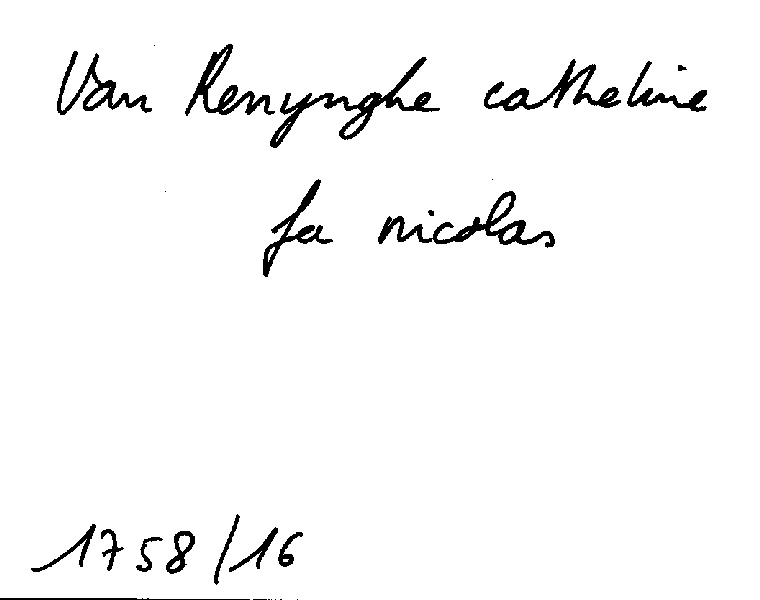 Van Renynghe catheline
fa nicolas
1758/16